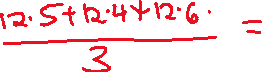 12.5+12.4+12.6.
3 =